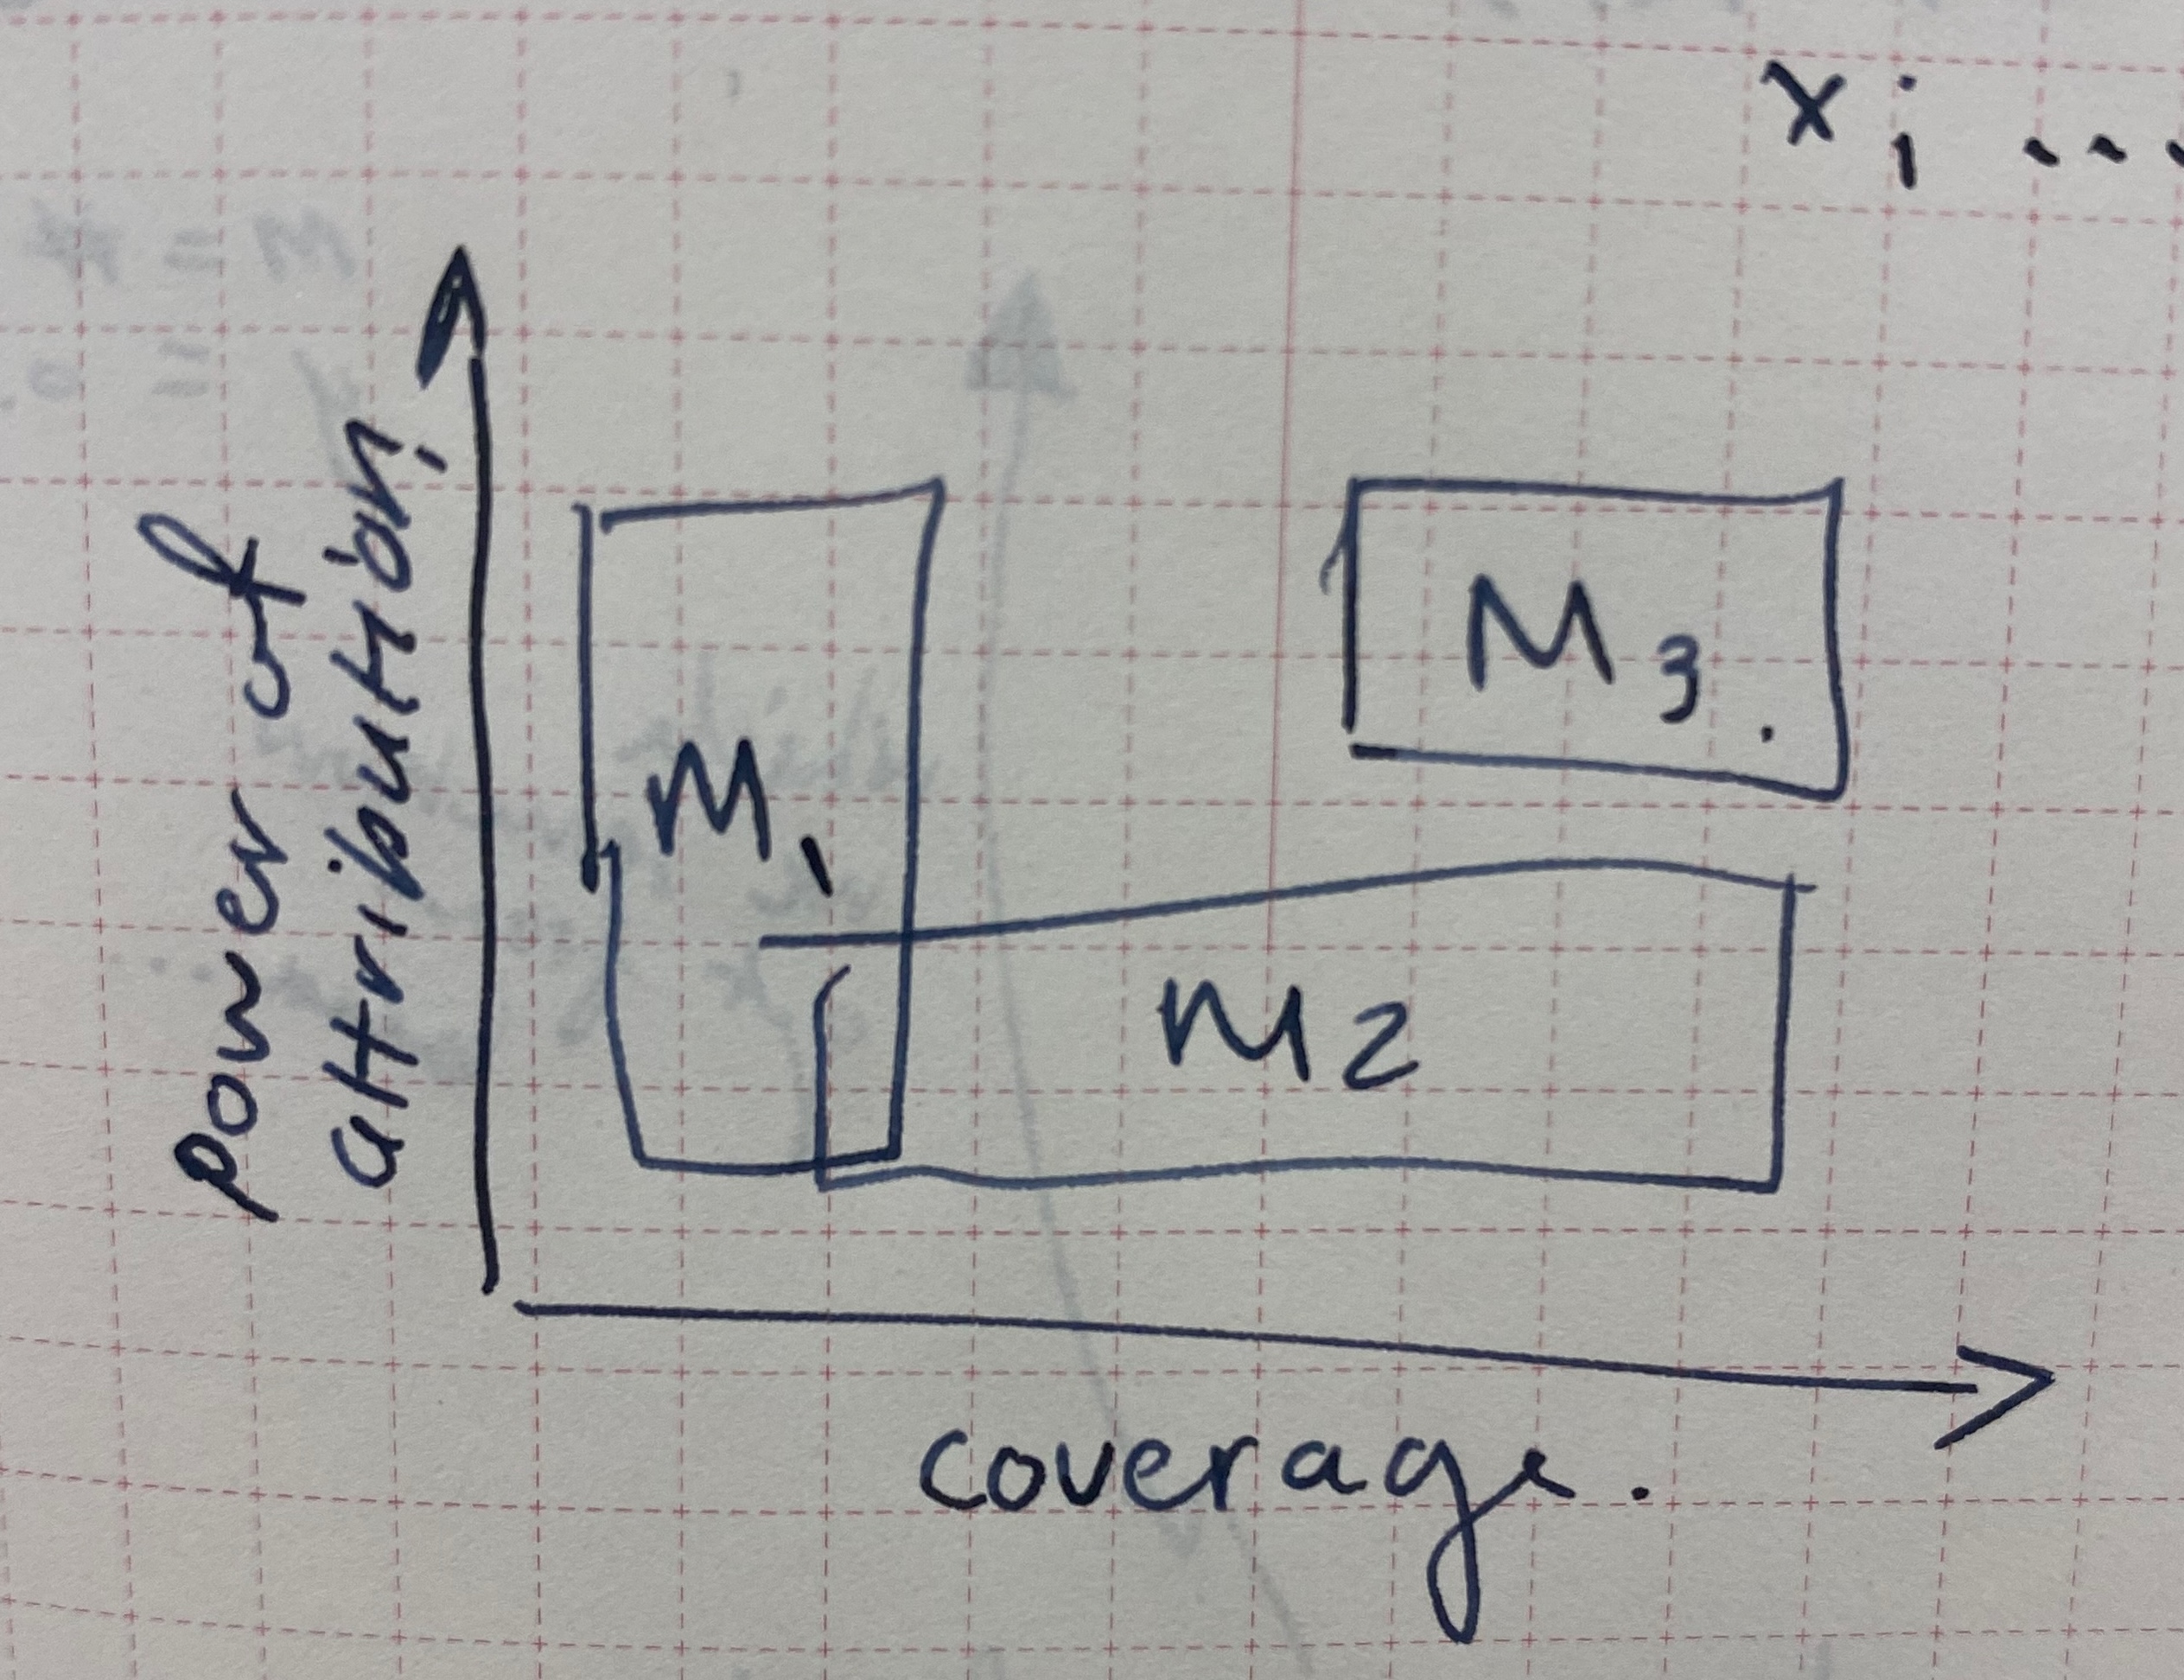 x i ...
power of
attribution.
M1
M3.
M2
coverage.